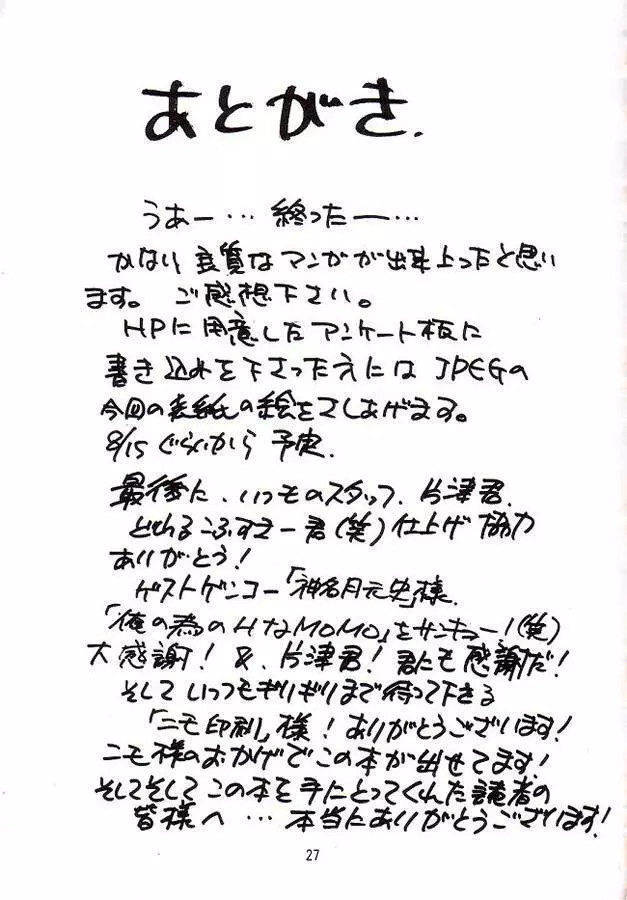 あとがき.
うあー… 終ったー…
かない 良質なマンガが出来上ったと思い
ます。 ご感想下さい。
HPに用意したアンケート板に
書き込みを下さった方には JPEGの
今回の表紙の絵をさしあげます。
8/15ぐらいから 予定.
最後に、いつものスタッフ、片津君.
とれるこふすきー君(笑)仕上げ協力
ありがとう!
ゲストゲンコー「神名月元史」様.
「俺の為のHなMOMO」をサンキュー!(笑)
大感謝! &、片津君! 君にも感謝だ!
そしていつもギリギリまで待って下さる
「ニモ印刷」様! ありがとうございます!
ニモ様のおかげでこの本が出せてます!
そしてそして この本を手にとってくれた読者の
皆様へ … 本当にありがとうございます!
27